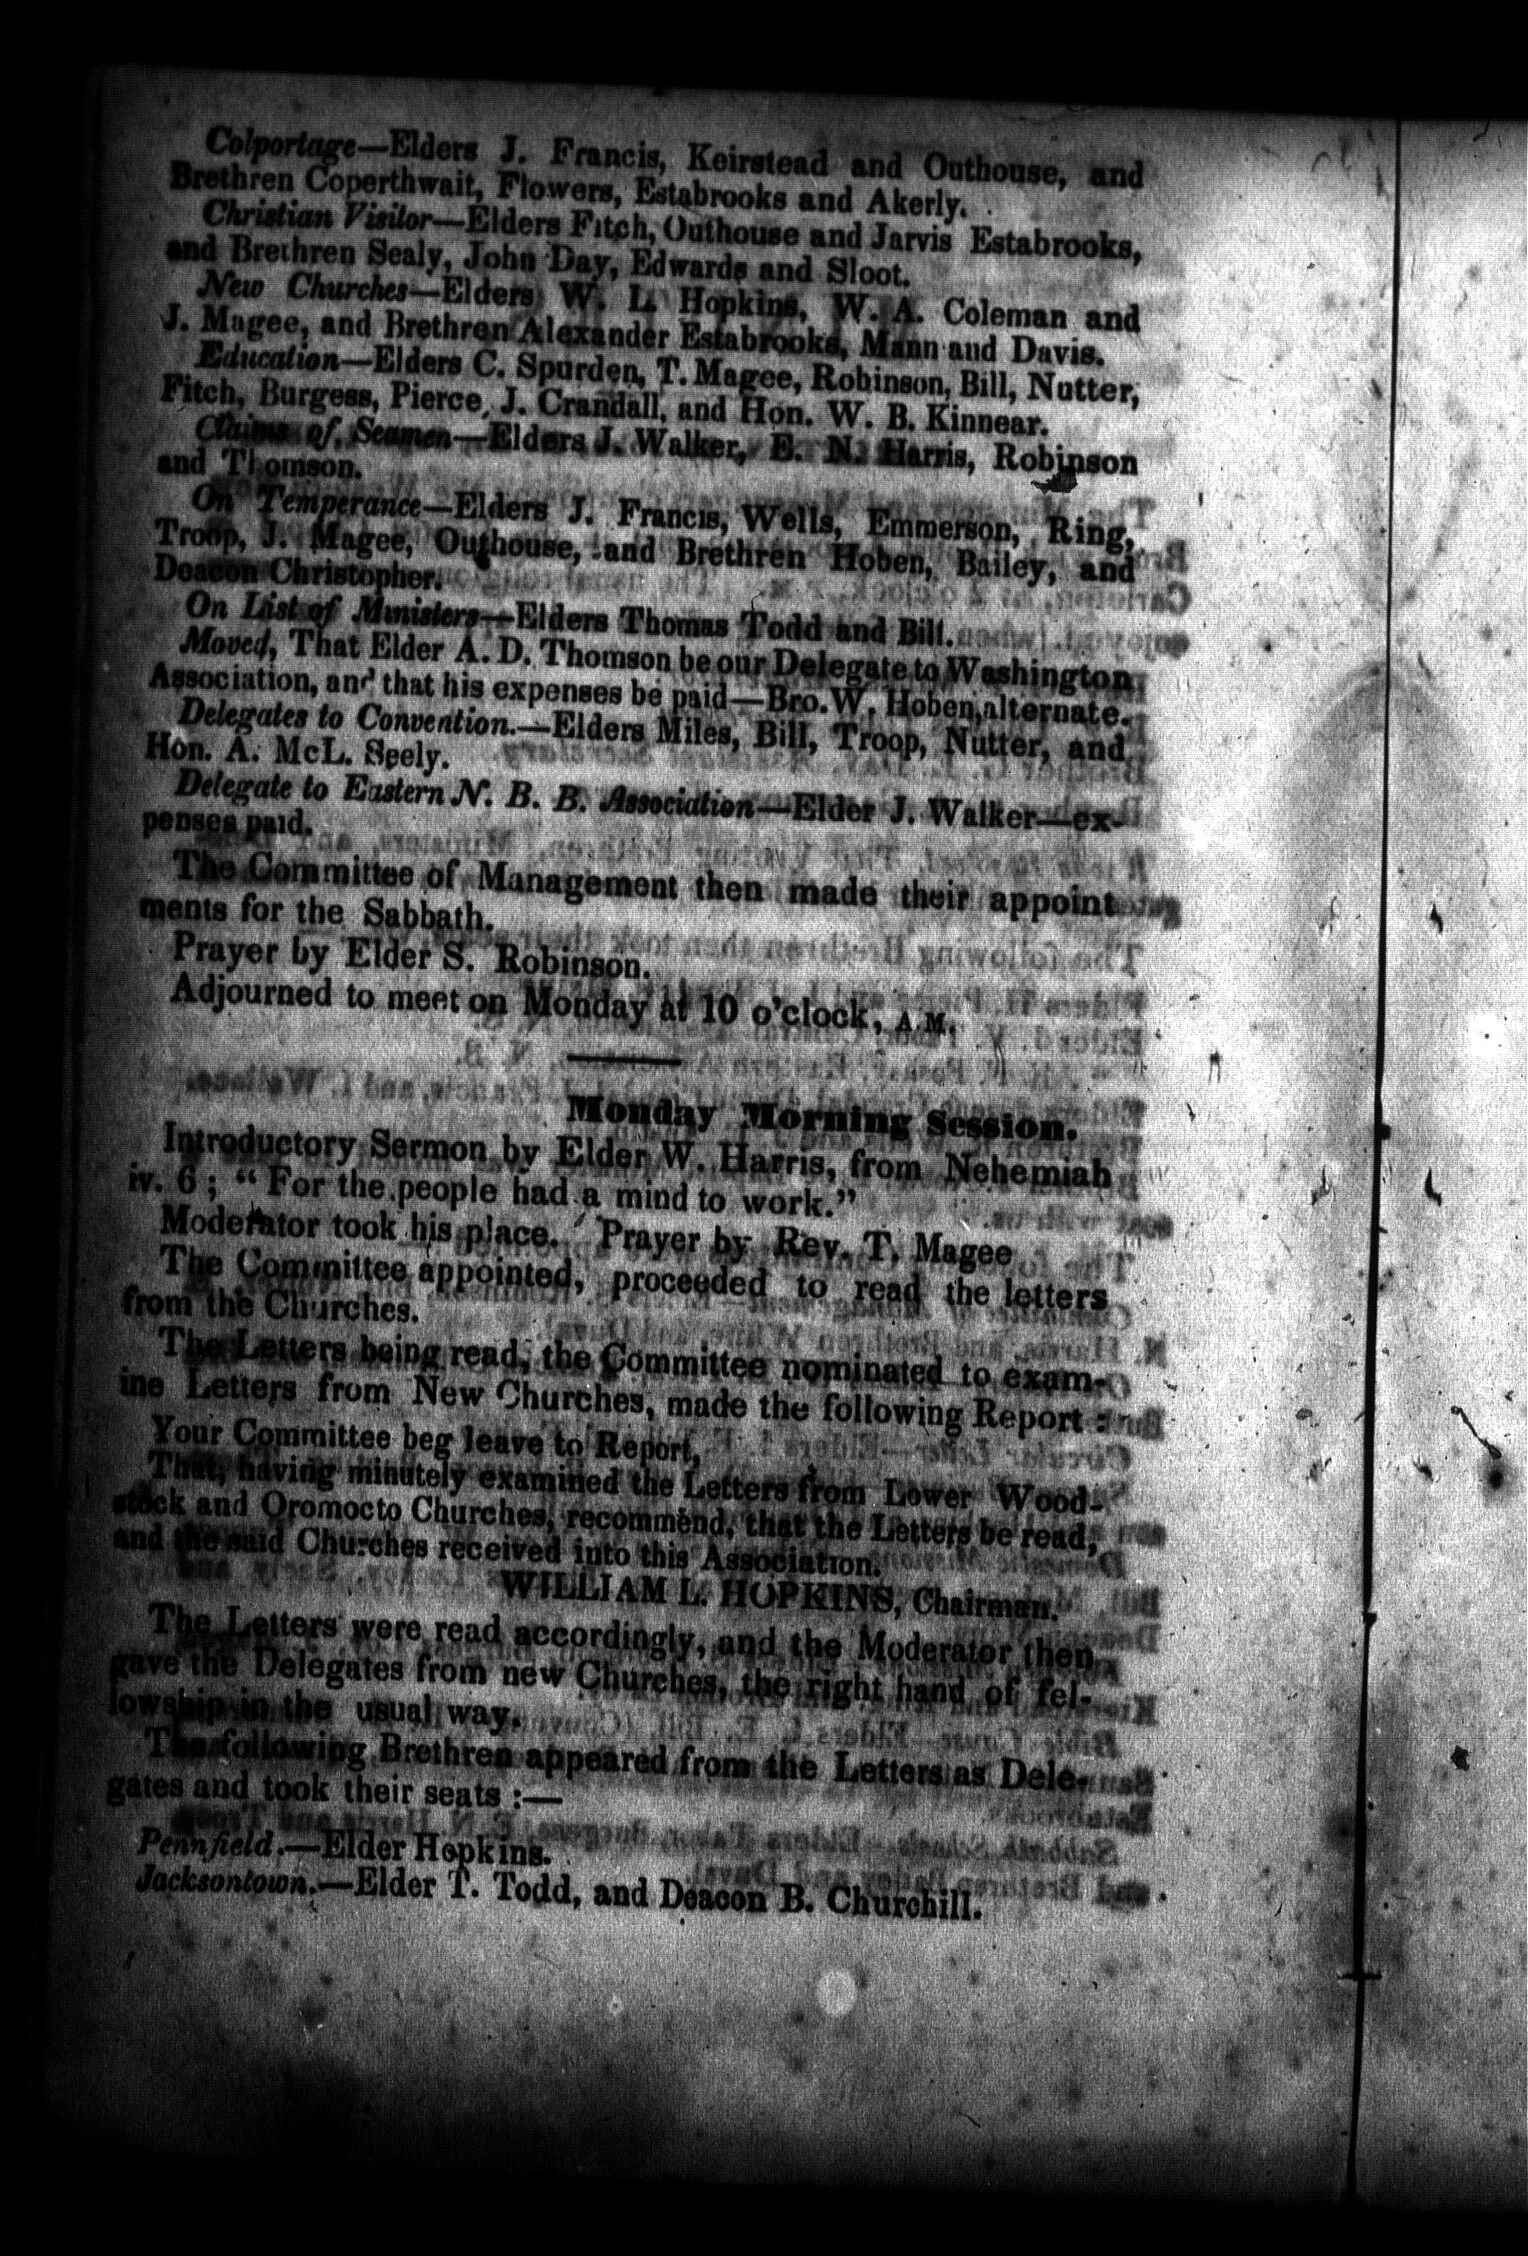 Colportage—Elders J. Francis, Keirstead and Outhouse, and
Brethren Coperthwait, Flowers, Estabrooks and Akerly.
Christian Visitor—Elders Fitch, Outhouse and Jarvis Estabrooks,
and Brethren Sealy, John Day, Edwards and Sloot.
New Churches—Elders W. L. Hopkins, W. A. Coleman and
J. Magee, and Brethren Alexander Estabrooks, Mann and Davis.
Education—Elders C. Spurden, T. Magee, Robinson, Bill, Nutter,
Fitch, Burgess, Pierce, J. Crandall, and Hon. W. B. Kinnear.
Claims of Seamen—Elders J. Walker, E. N. Harris, Robinson
and Thomson.
On Temperance—Elders J. Francis, Wells, Emmerson, Ring,
Troop, J. Magee, Outhouse, and Brethren Hoben, Bailey, and
Deacon Christopher.
On List of Ministers—Elders Thomas Todd and Bill.
Moved, That Elder A. D. Thomson be our Delegate to Washington
Association, and that his expenses be paid—Bro. W. Hoben, alternate.
Delegates to Convention.—Elders Miles, Bill, Troop, Nutter, and
Hon. A. McL. Seely.
Delegate to Eastern N. B. B. Association—Elder J. Walker—ex-
penses paid.
The Committee of Management then made their appoint
ments for the Sabbath.
Prayer by Elder S. Robinson.
Adjourned to meet on Monday at 10 o'clock, A.M.
Monday Morning Session.
Introductory Sermon by Elder W. Harris, from Nehemiah
iv. 6; "For the people had a mind to work."
Moderator took his place. Prayer by Rev. T. Magee
The Committee appointed, proceeded to read the letters
from the Churches.
The Letters being read, the Committee nominated to exam-
ine Letters from New Churches, made the following Report:
Your Committee beg leave to Report,
That, having minutely examined the Letters from Lower Wood-
stock and Oromocto Churches, recommend, that the Letters be read,
and the said Churches received into this Association.
WILLIAM L. HOPKINS, Chairman.
The Letters were read accordingly, and the Moderator then
gave the Delegates from new Churches, the right hand of fel-
lowship in the usual way.
The following Brethren appeared from the Letters as Dele-
gates and took their seats :—
Pennfield.—Elder Hopkins.
Jacksontown.—Elder T. Todd, and Deacon B. Churchill.